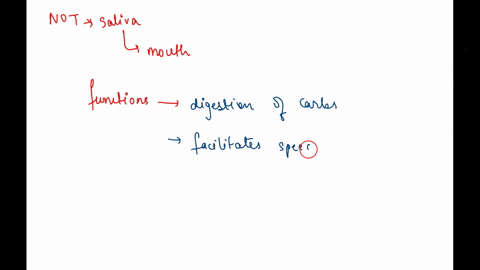 NOT → saliva
↳ mouth
functions → digestion of carbs
→ facilitates spee